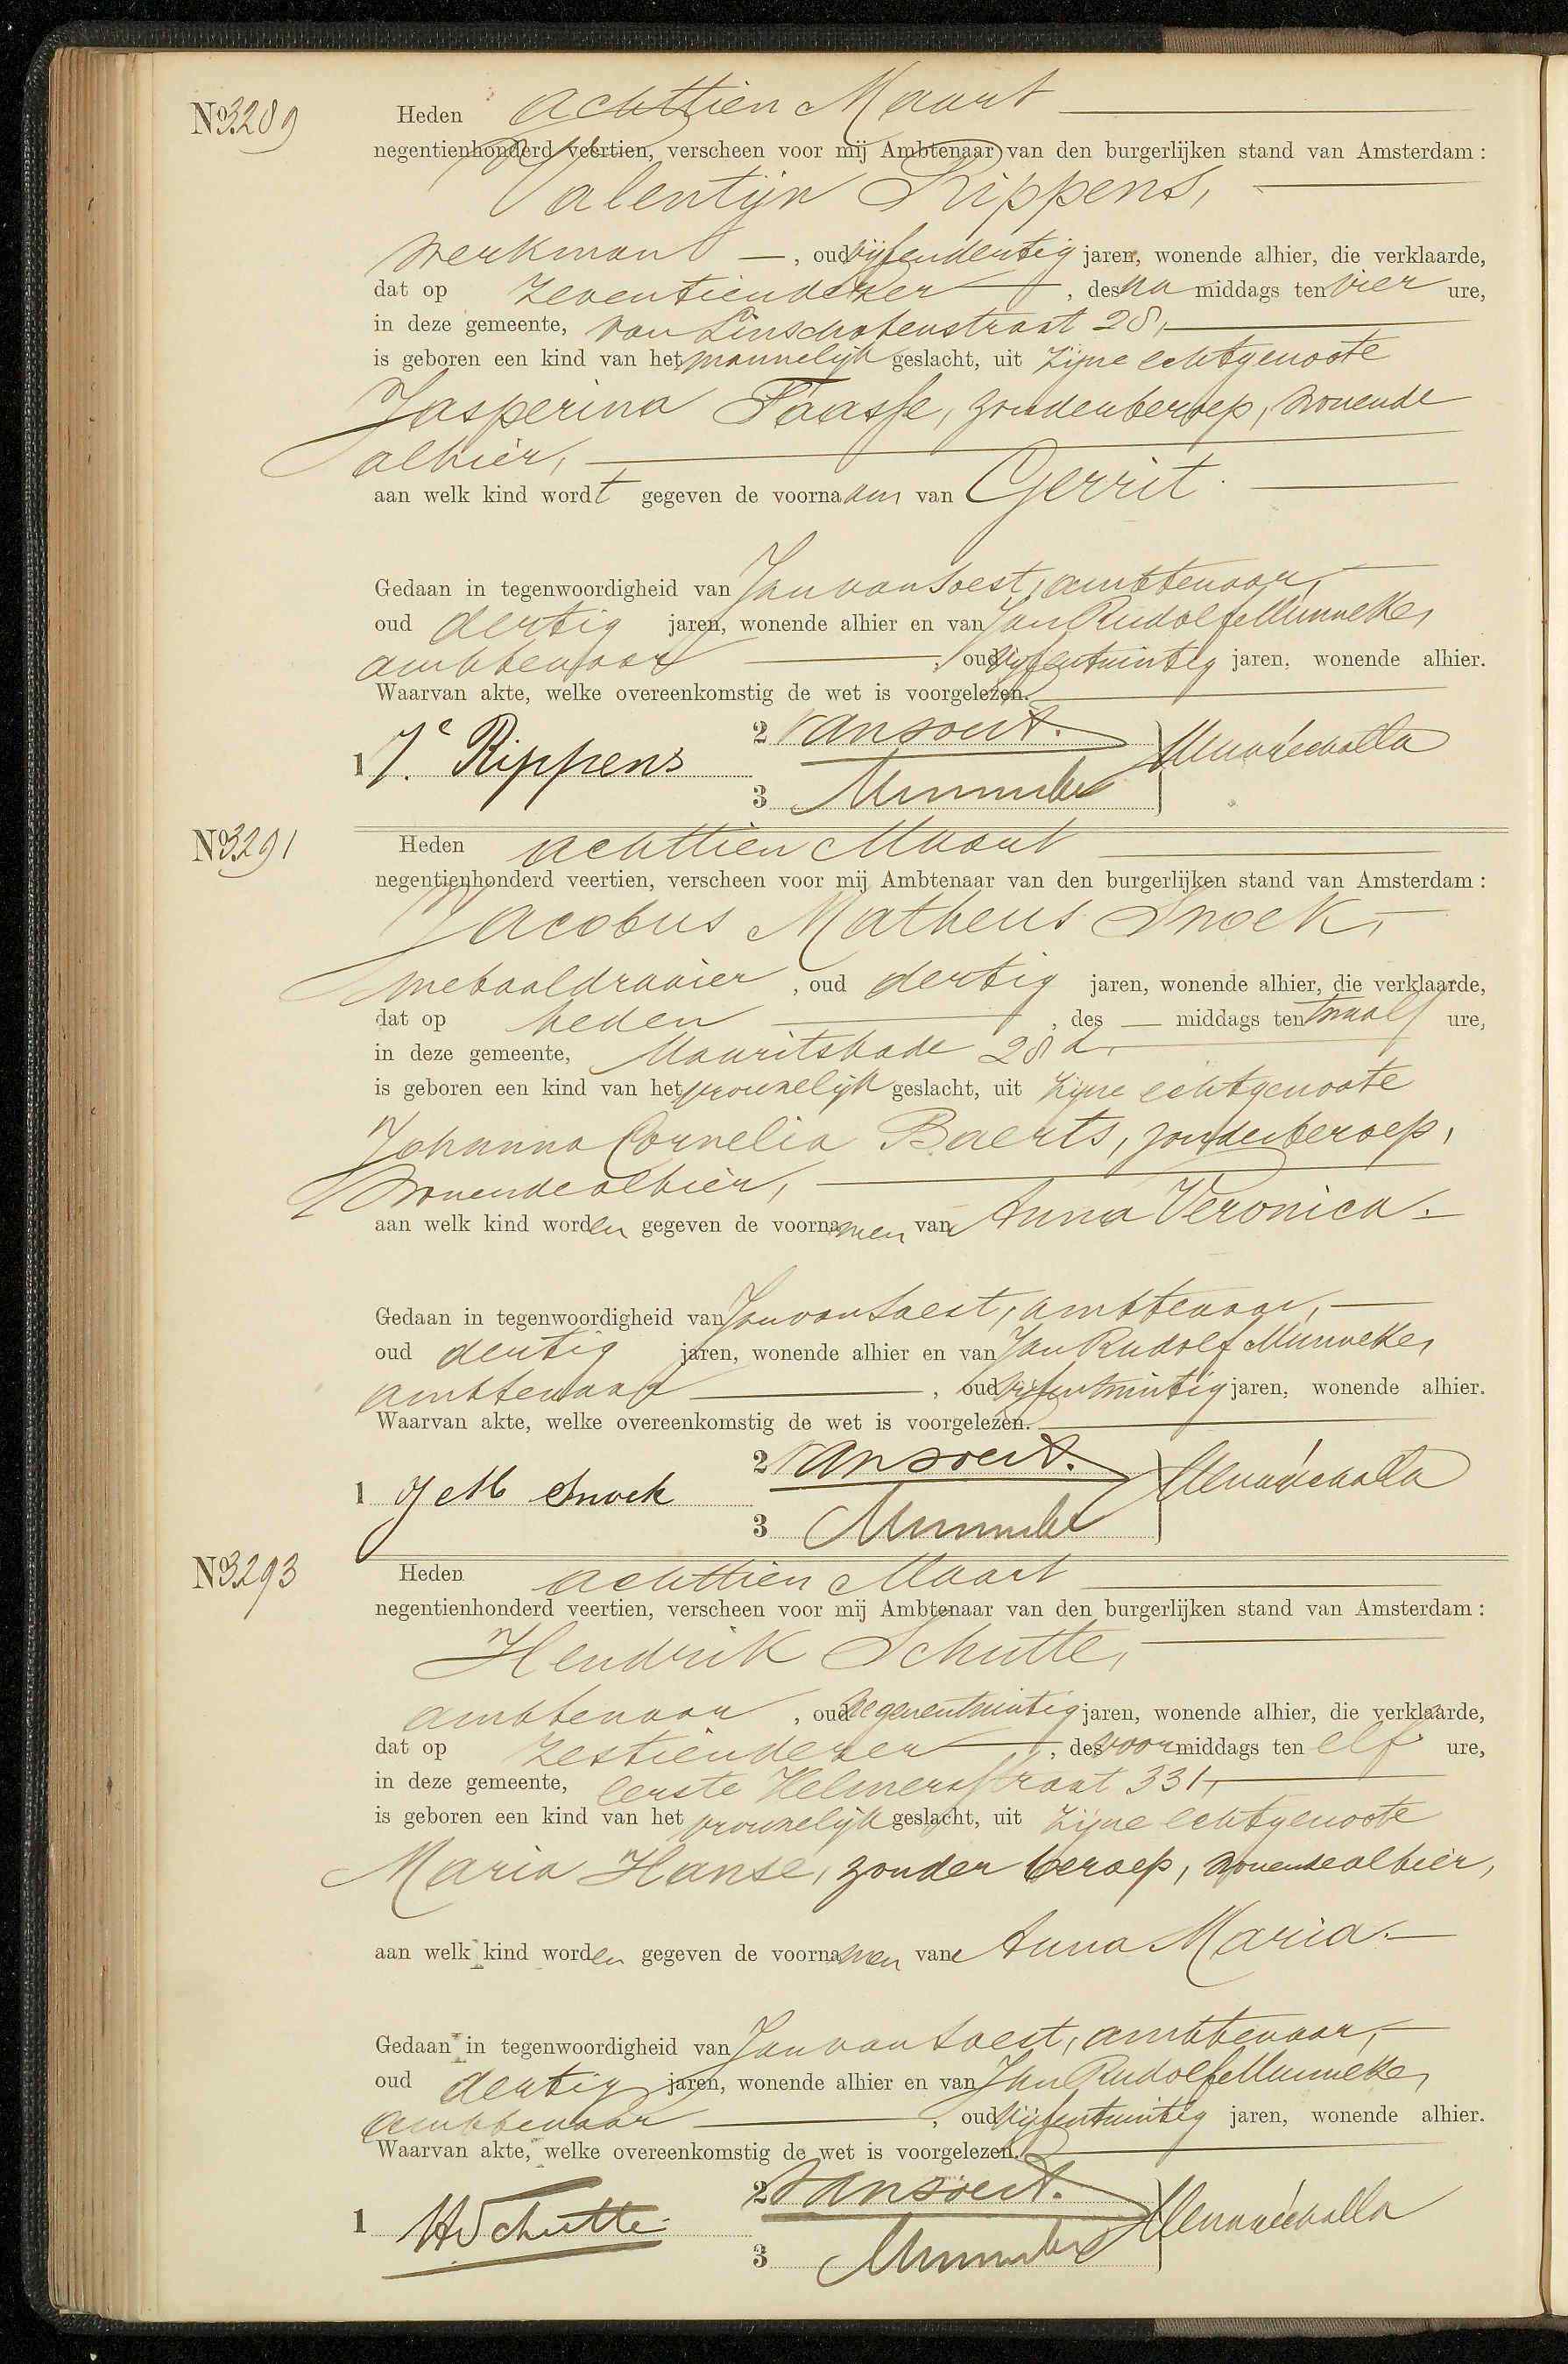 No. 3289
Heden achttien Maart
negentienhonderd veertien, verscheen voor mij Ambtenaar van den burgerlijken stand van Amsterdam:
Valentijn Rippens,
werkman —, oud vijfendertig jaren, wonende alhier, die verklaarde,
dat op zeventiendezer, des na middags ten vier ure,
in deze gemeente, van Linschotenstraat 28,
is geboren een kind van het mannelijk geslacht, uit zijne echtgenoote
Jasperina Faasse, zonder beroep, wonende
alhier,
aan welk kind wordt gegeven de voornaam van Gerrit.
Gedaan in tegenwoordigheid van Jan van Soest, ambtenaar,
oud dertig jaren, wonende alhier en van Jan Rudolf Munneke,
ambtenaar, oud vijfentwintig jaren, wonende alhier.
Waarvan akte, welke overeenkomstig de wet is voorgelezen.
1 Rippens 2 van Soest.
3 Munneke
No. 3291
Heden achttien Maart
negentienhonderd veertien, verscheen voor mij Ambtenaar van den burgerlijken stand van Amsterdam:
Jacobus Matheus Snoek,
metaaldraaier, oud dertig jaren, wonende alhier, die verklaarde,
dat op heden, des — middags ten twaalf ure,
in deze gemeente, Mauritskade 28 d,
is geboren een kind van het vrouwelijk geslacht, uit zijne echtgenoote
Johanna Cornelia Baerts, zonder beroep,
wonende alhier,
aan welk kind worden gegeven de voornamen van Anna Veronica.
Gedaan in tegenwoordigheid van Jan van Soest, ambtenaar,
oud dertig jaren, wonende alhier en van Jan Rudolf Munneke,
ambtenaar, oud vijfentwintig jaren, wonende alhier.
Waarvan akte, welke overeenkomstig de wet is voorgelezen.
1 J M Snoek 2 van Soest.
3 Munneke
No. 3293
Heden achttien Maart
negentienhonderd veertien, verscheen voor mij Ambtenaar van den burgerlijken stand van Amsterdam:
Hendrik Schutte,
ambtenaar, oud negenentwintig jaren, wonende alhier, die verklaarde,
dat op zestiendezer, des voormiddags ten elf ure,
in deze gemeente, eerste Helmersstraat 331,
is geboren een kind van het vrouwelijk geslacht, uit zijne echtgenoote
Maria Hanse, zonder beroep, wonende alhier,
aan welk kind worden gegeven de voornamen van Anna Maria.
Gedaan in tegenwoordigheid van Jan van Soest, ambtenaar,
oud dertig jaren, wonende alhier en van Jan Rudolf Munneke,
ambtenaar, oud vijfentwintig jaren, wonende alhier.
Waarvan akte, welke overeenkomstig de wet is voorgelezen.
1 H Schutte 2 van Soest.
3 Munneke